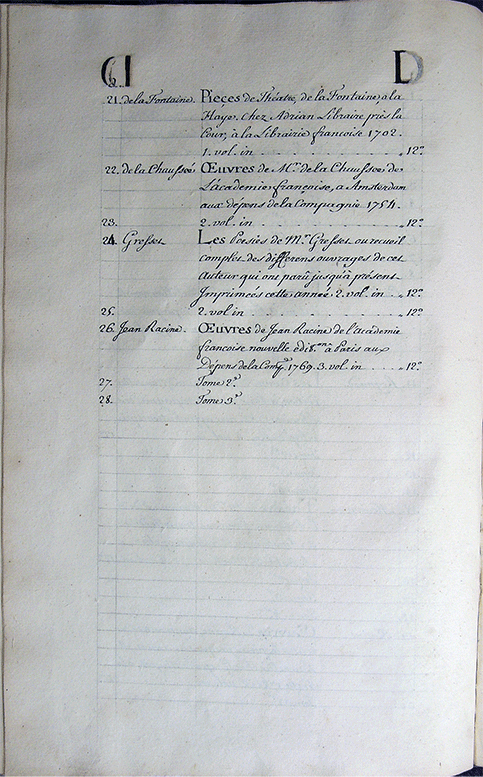 D
21. de la Fontaine. Pieces de Théatre, de la Fontaine, a la
Haye. Chez Adrian Libraire près la
Cour, à la Librairie francoise 1702.
1. vol. in . . . . . 12º
22. de la Chaussée. Œuvres de Mr. de la Chaussée, de
L'academie, française, a Amsterdam
aux depens de la Compagnie 1754.
23. 2. vol. in . . . . . 12º
24. Gresset. Les Poesies de Mr. Gresset, ou recueil
complet des differens ouvrages de cet
Auteur qui ont parû jusqu'à présent
Imprimées cette année 2. vol. in . . 12º
25. 2. vol in . . . . . 12º
26. Jean Racine. Œuvres de Jean Racine de l'academie
francoise nouvelle à Paris aux
Depens de la Compe. 1769. 3. vol. in . . . 12º
27. Tome 2º
28. Tome 3º